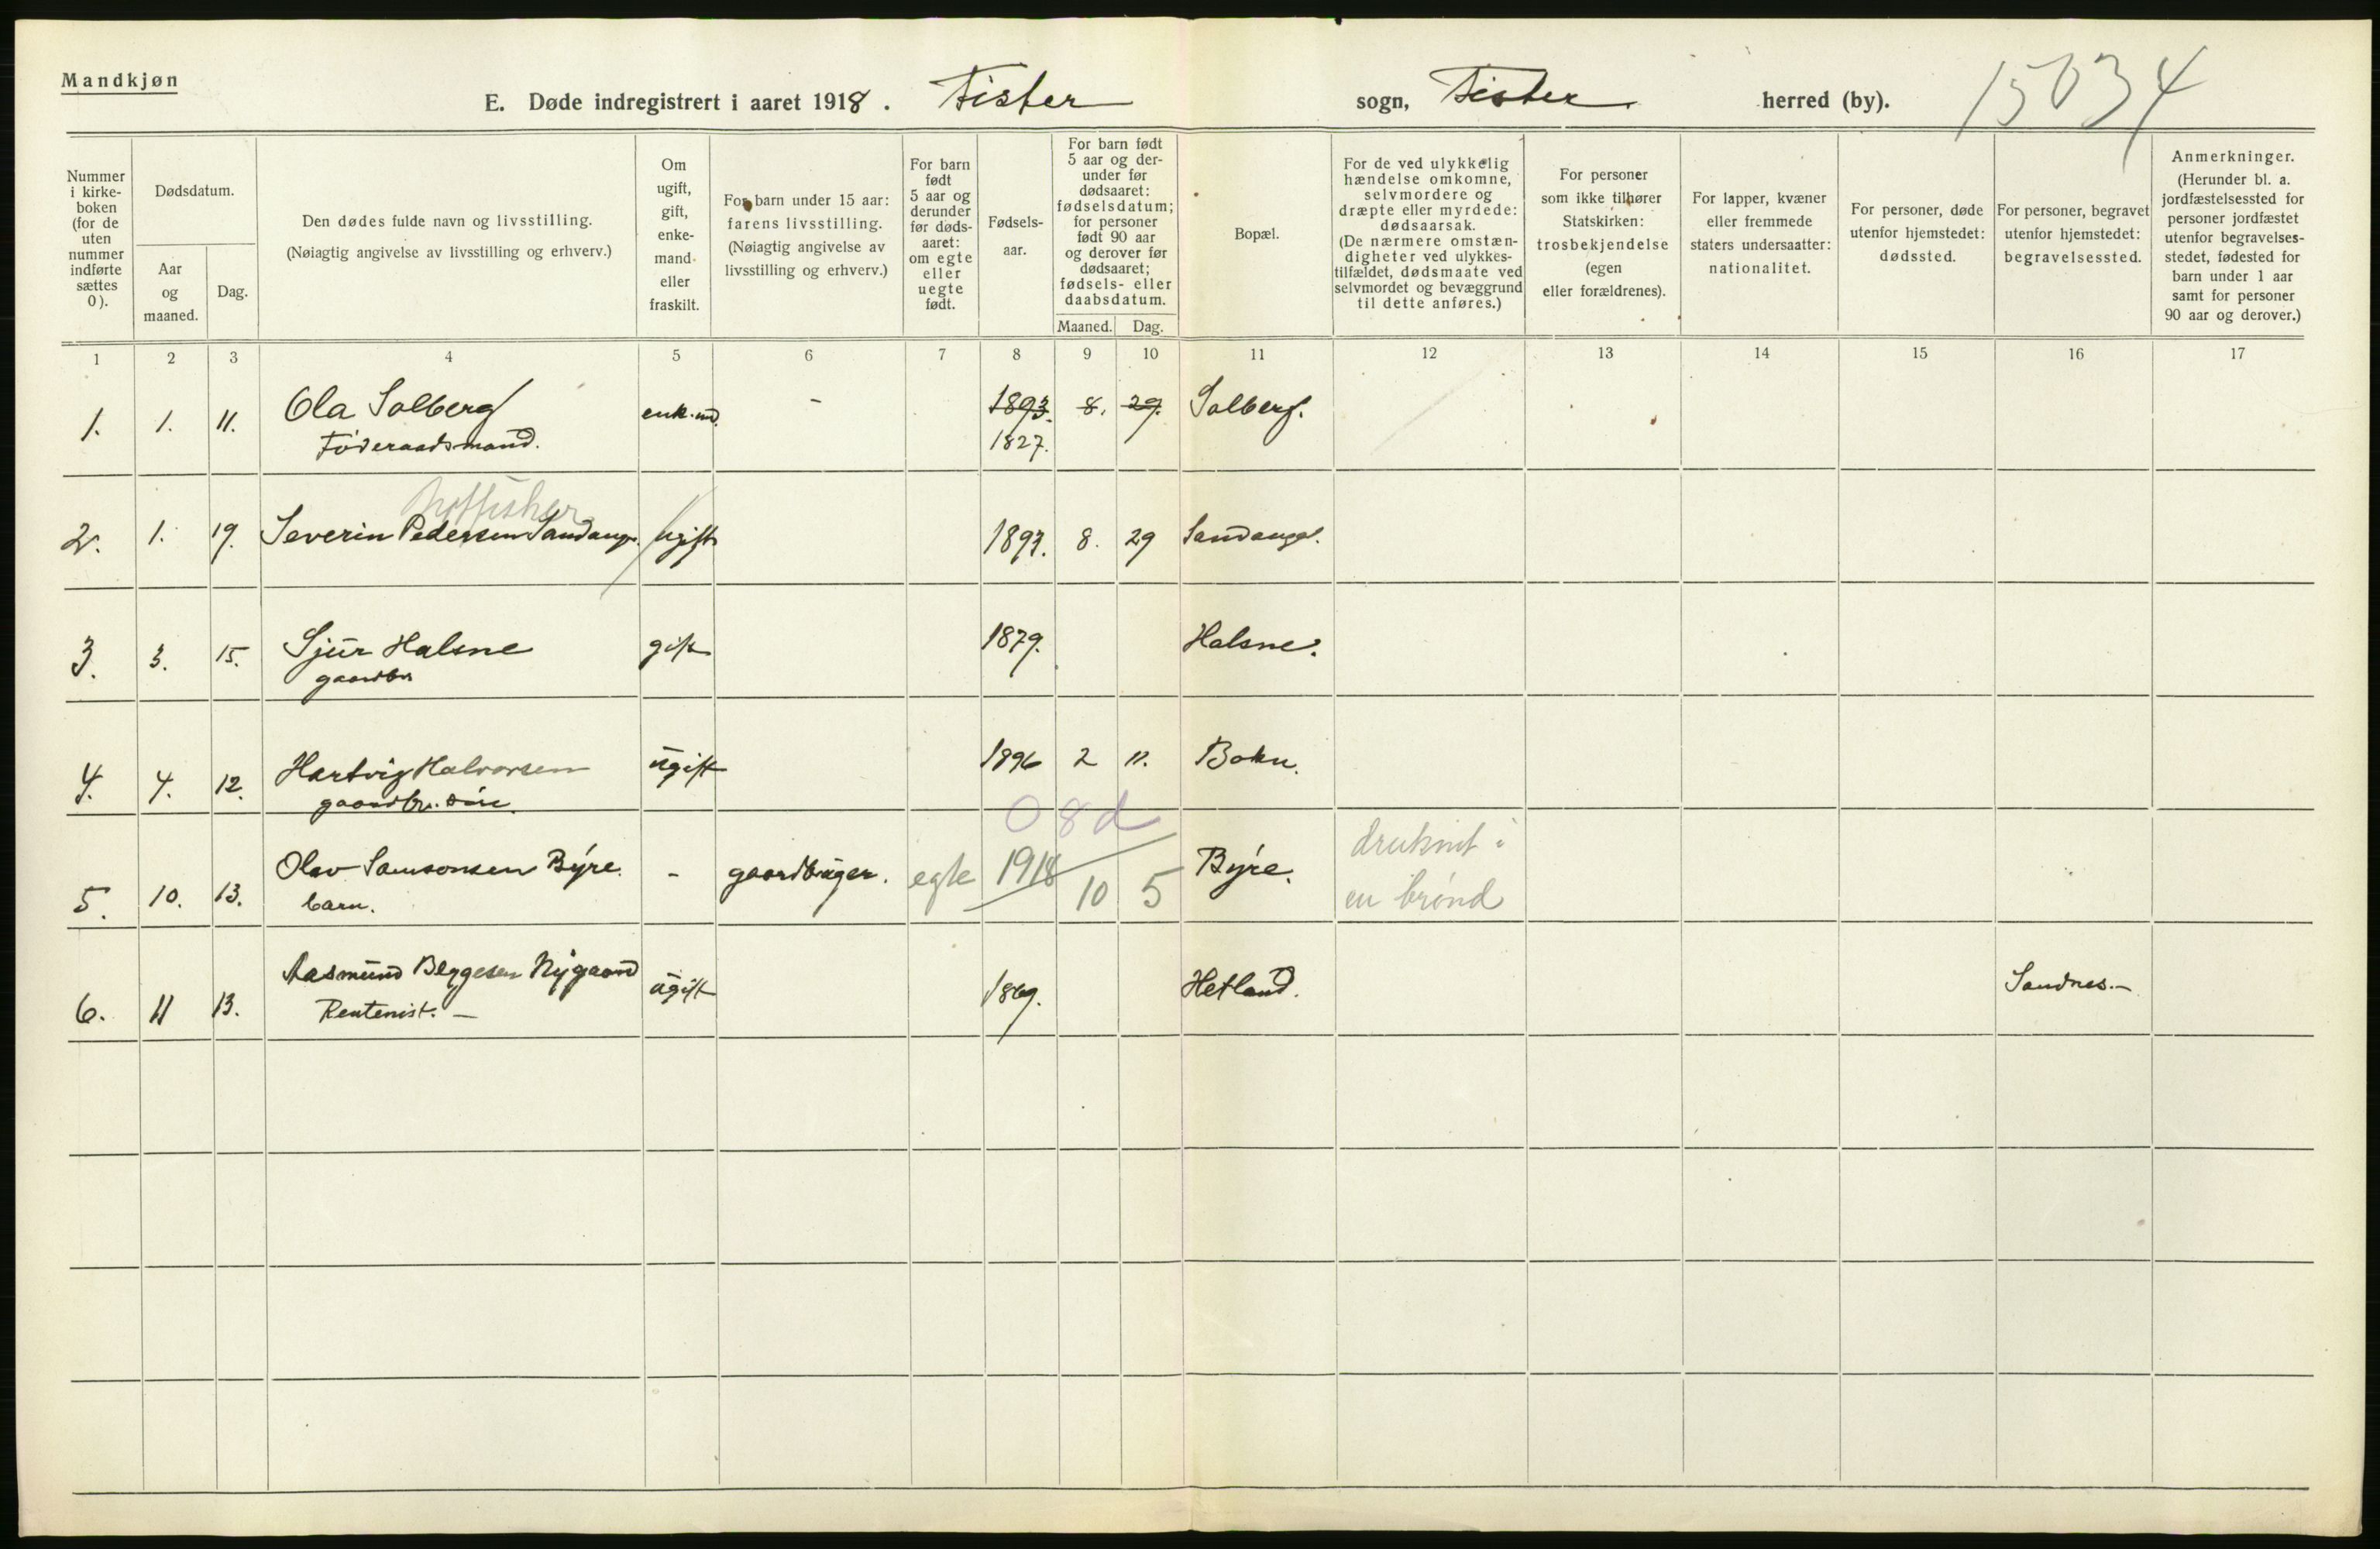 Mandkjøn
E. Døde indregistrert i aaret 1918. Fister sogn, Fister herred (by). 15034
Nummer i kirke-boken (for de uten nummer indførte sættes 0).
Dødsdatum.
Aar og maaned.
Dag.
Den dødes fulde navn og livsstilling.
(Nøiagtig angivelse av livsstilling og erhverv.)
Om ugift, gift, enke-mand eller fraskilt.
For barn under 15 aar: farens livsstilling.
(Nøiagtig angivelse av livsstilling og erhverv.)
For barn født 5 aar og derunder før døds-aaret: om egte eller uegte født.
Fødsels-aar.
For barn født 5 aar og der-under før dødsaaret: fødselsdatum; for personer født 90 aar og derover før dødsaaret; fødsels- eller daabsdatum.
Maaned. Dag.
Bopæl.
For de ved ulykkelig hændelse omkomne, selvmordere og dræpte eller myrdede: dødsaarsak.
(De nærmere omstæn-digheter ved ulykkes-tilfældet, dødsmaate ved selvmordet og bevæggrund til dette anføres.)
For personer som ikke tilhører Statskirken: trosbekjendelse (egen eller forældrenes).
For lapper, kvæner eller fremmede staters undersaatter: nationalitet.
For personer, døde utenfor hjemstedet: dødssted.
For personer, begravet utenfor hjemstedet: begravelsessted.
Anmerkninger.
(Herunder bl. a. jordfæstelsessted for personer jordfæstet utenfor begravelses-stedet, fødested for barn under 1 aar samt for personer 90 aar og derover.)
1 2 3 4 5 6 7 8 9 10 11 12 13 14 15 16 17
1. 1. 11. Ola Solberg enk.md. - 1893. 8. 29. Solberg.
Føderaadsmand. 1827.
2. 1. 19. Severin Pedersen Sandang. ugift 1893. 8. 29 Sandanger.
3. 3. 15. Sjur Halsne gift 1879. Halsne.
gaardbr
4. 4. 12. Hartvig Halvorsen ugift 1896 2 11. Bokn.
gaardbr. søn
0 8 d
5. 10. 13. Olav Samsonsen Byre. - gaardbruger. egte 1918 10 5 Byre. druknet i
barn. en brønd
6. 11 13. Aasmund Nygaard ugift 1869. Hetland. Sandnes.-
Rentenist. -